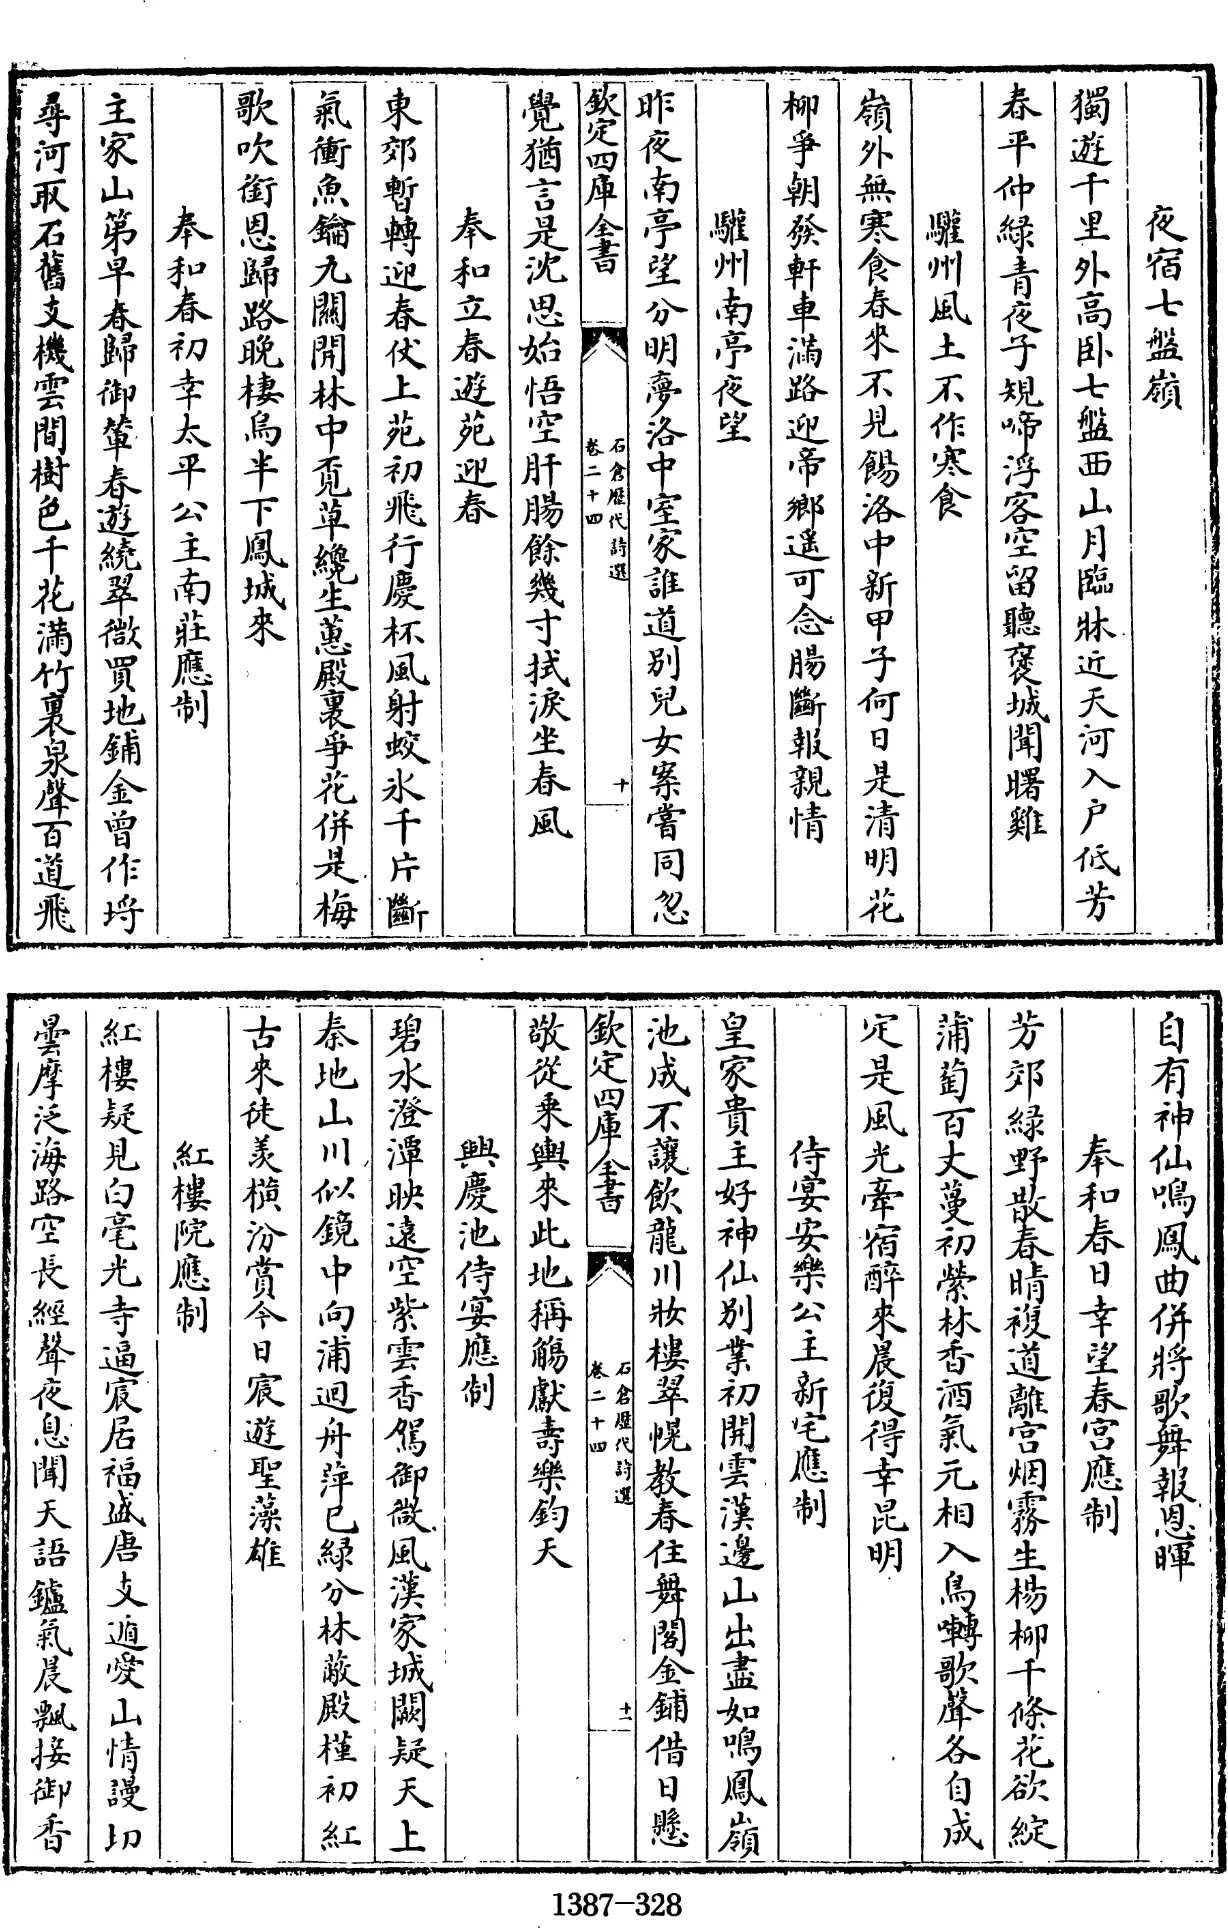 夜宿七盤嶺
獨遊千里外高卧七盤西山月臨牀近天河入户低芳
春平仲緑青夜子規啼浮客空留聽褒城聞曙雞
驩州風土不作寒食
嶺外無寒食春來不見餳洛中新甲子何日是清明花
柳爭朝發軒車滿路迎帝鄉遥可念腸斷報親情
驩州南亭夜望
昨夜南亭望分明夢洛中室家誰道别兒女案嘗同忽
欽定四庫全書
石倉歴代詩選
卷二十四
十
覺猶言是沈思始悟空肝腸餘幾寸拭淚坐春風
奉和立春遊苑迎春
東郊暫轉迎春仗上苑初飛行慶杯風射蛟氷千片斷
氣衝魚鑰九關開林中覓草纔生蕙殿裏爭花併是梅
歌吹銜恩歸路晩棲烏半下鳳城來
奉和春初幸太平公主南莊應制
主家山第早春歸御輦春遊繞翠微買地鋪金曾作埒
尋河取石舊支機雲間樹色千花滿竹裏泉聲百道飛
自有神仙鳴鳳曲併將歌舞報恩暉
奉和春日幸望春宮應制
芳郊緑野散春晴複道離宮烟霧生楊柳千條花欲綻
蒲萄百丈蔓初縈林香酒氣元相入鳥囀歌聲各自成
定是風光牽宿醉來晨復得幸昆明
侍宴安樂公主新宅應制
皇家貴主好神仙别業初開雲漢邊山出盡如鳴鳳嶺
池成不讓飲龍川妝樓翠幌教春住舞閣金鋪借日懸
欽定四庫全書
石倉歴代詩選
卷二十四
十一
敬從乗輿來此地稱觴獻壽樂鈞天
興慶池侍宴應制
碧水澄潭映遠空紫雲香駕御微風漢家城闕疑天上
秦地山川似鏡中向浦迴舟萍已緑分林蔽殿槿初紅
古來徒羨横汾賞今日宸遊聖藻雄
紅樓院應制
紅樓疑見白毫光寺逼宸居福盛唐支遁愛山情謾切
曇摩泛海路空長經聲夜息聞天語鑪氣晨飄接御香
1387-328